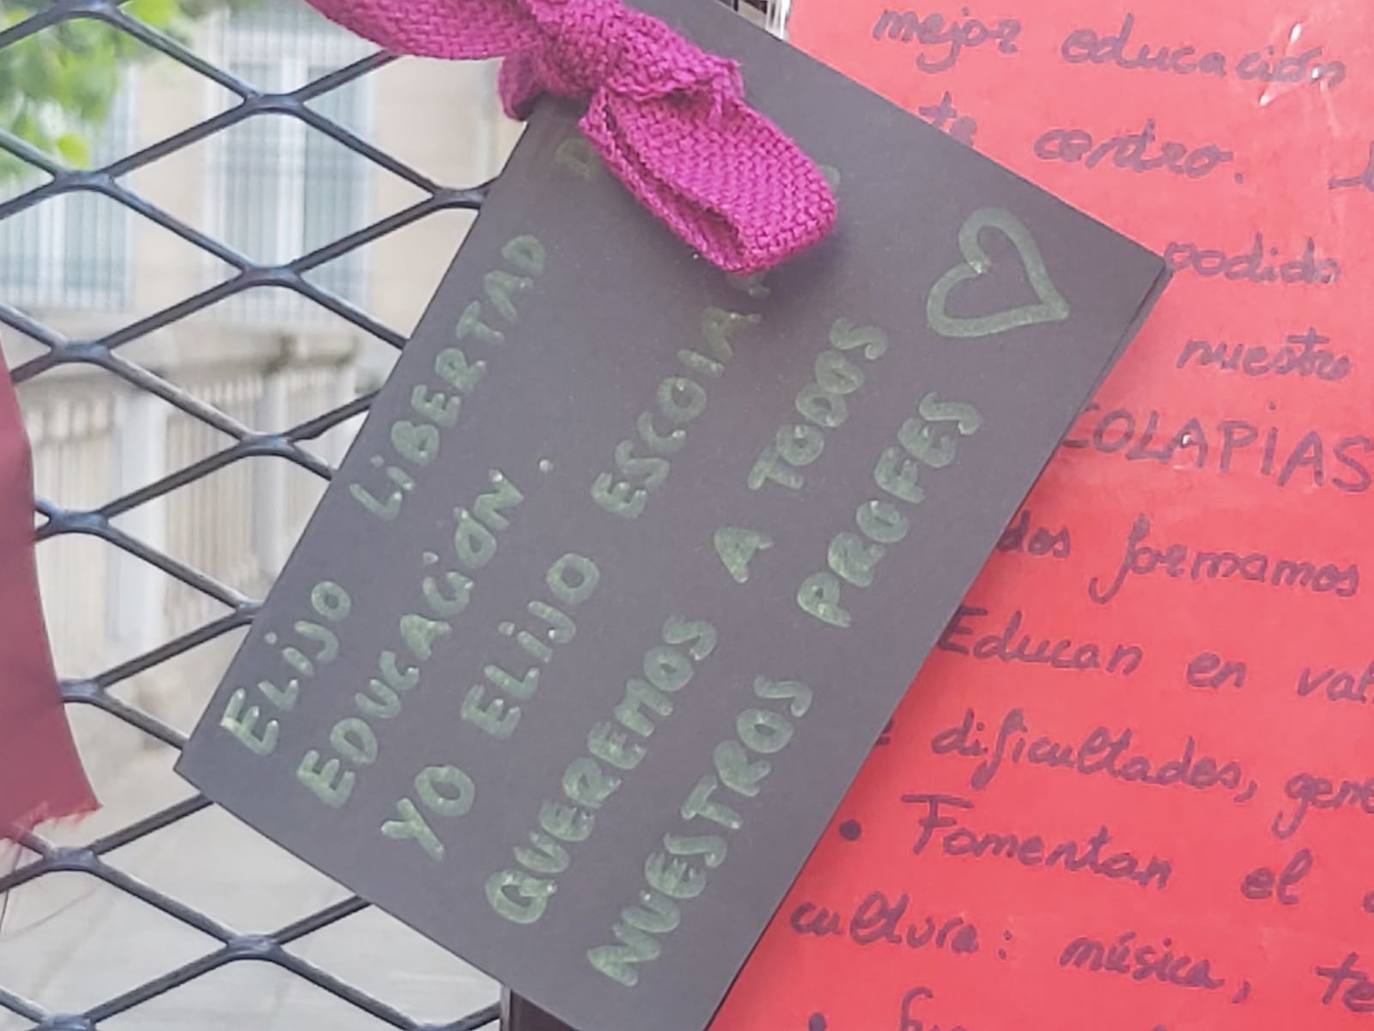 ELIJO LIBERTAD
EDUCACIÓN.
YO ELIJO ESCOLA
QUEREMOS A TODOS
NUESTROS PROFES
mejor educación
te centro.
podido
nuestro
COLAPIAS
dos formamos
Educan en val
dificultades, gene
• Fomentan el
cultura: música, te